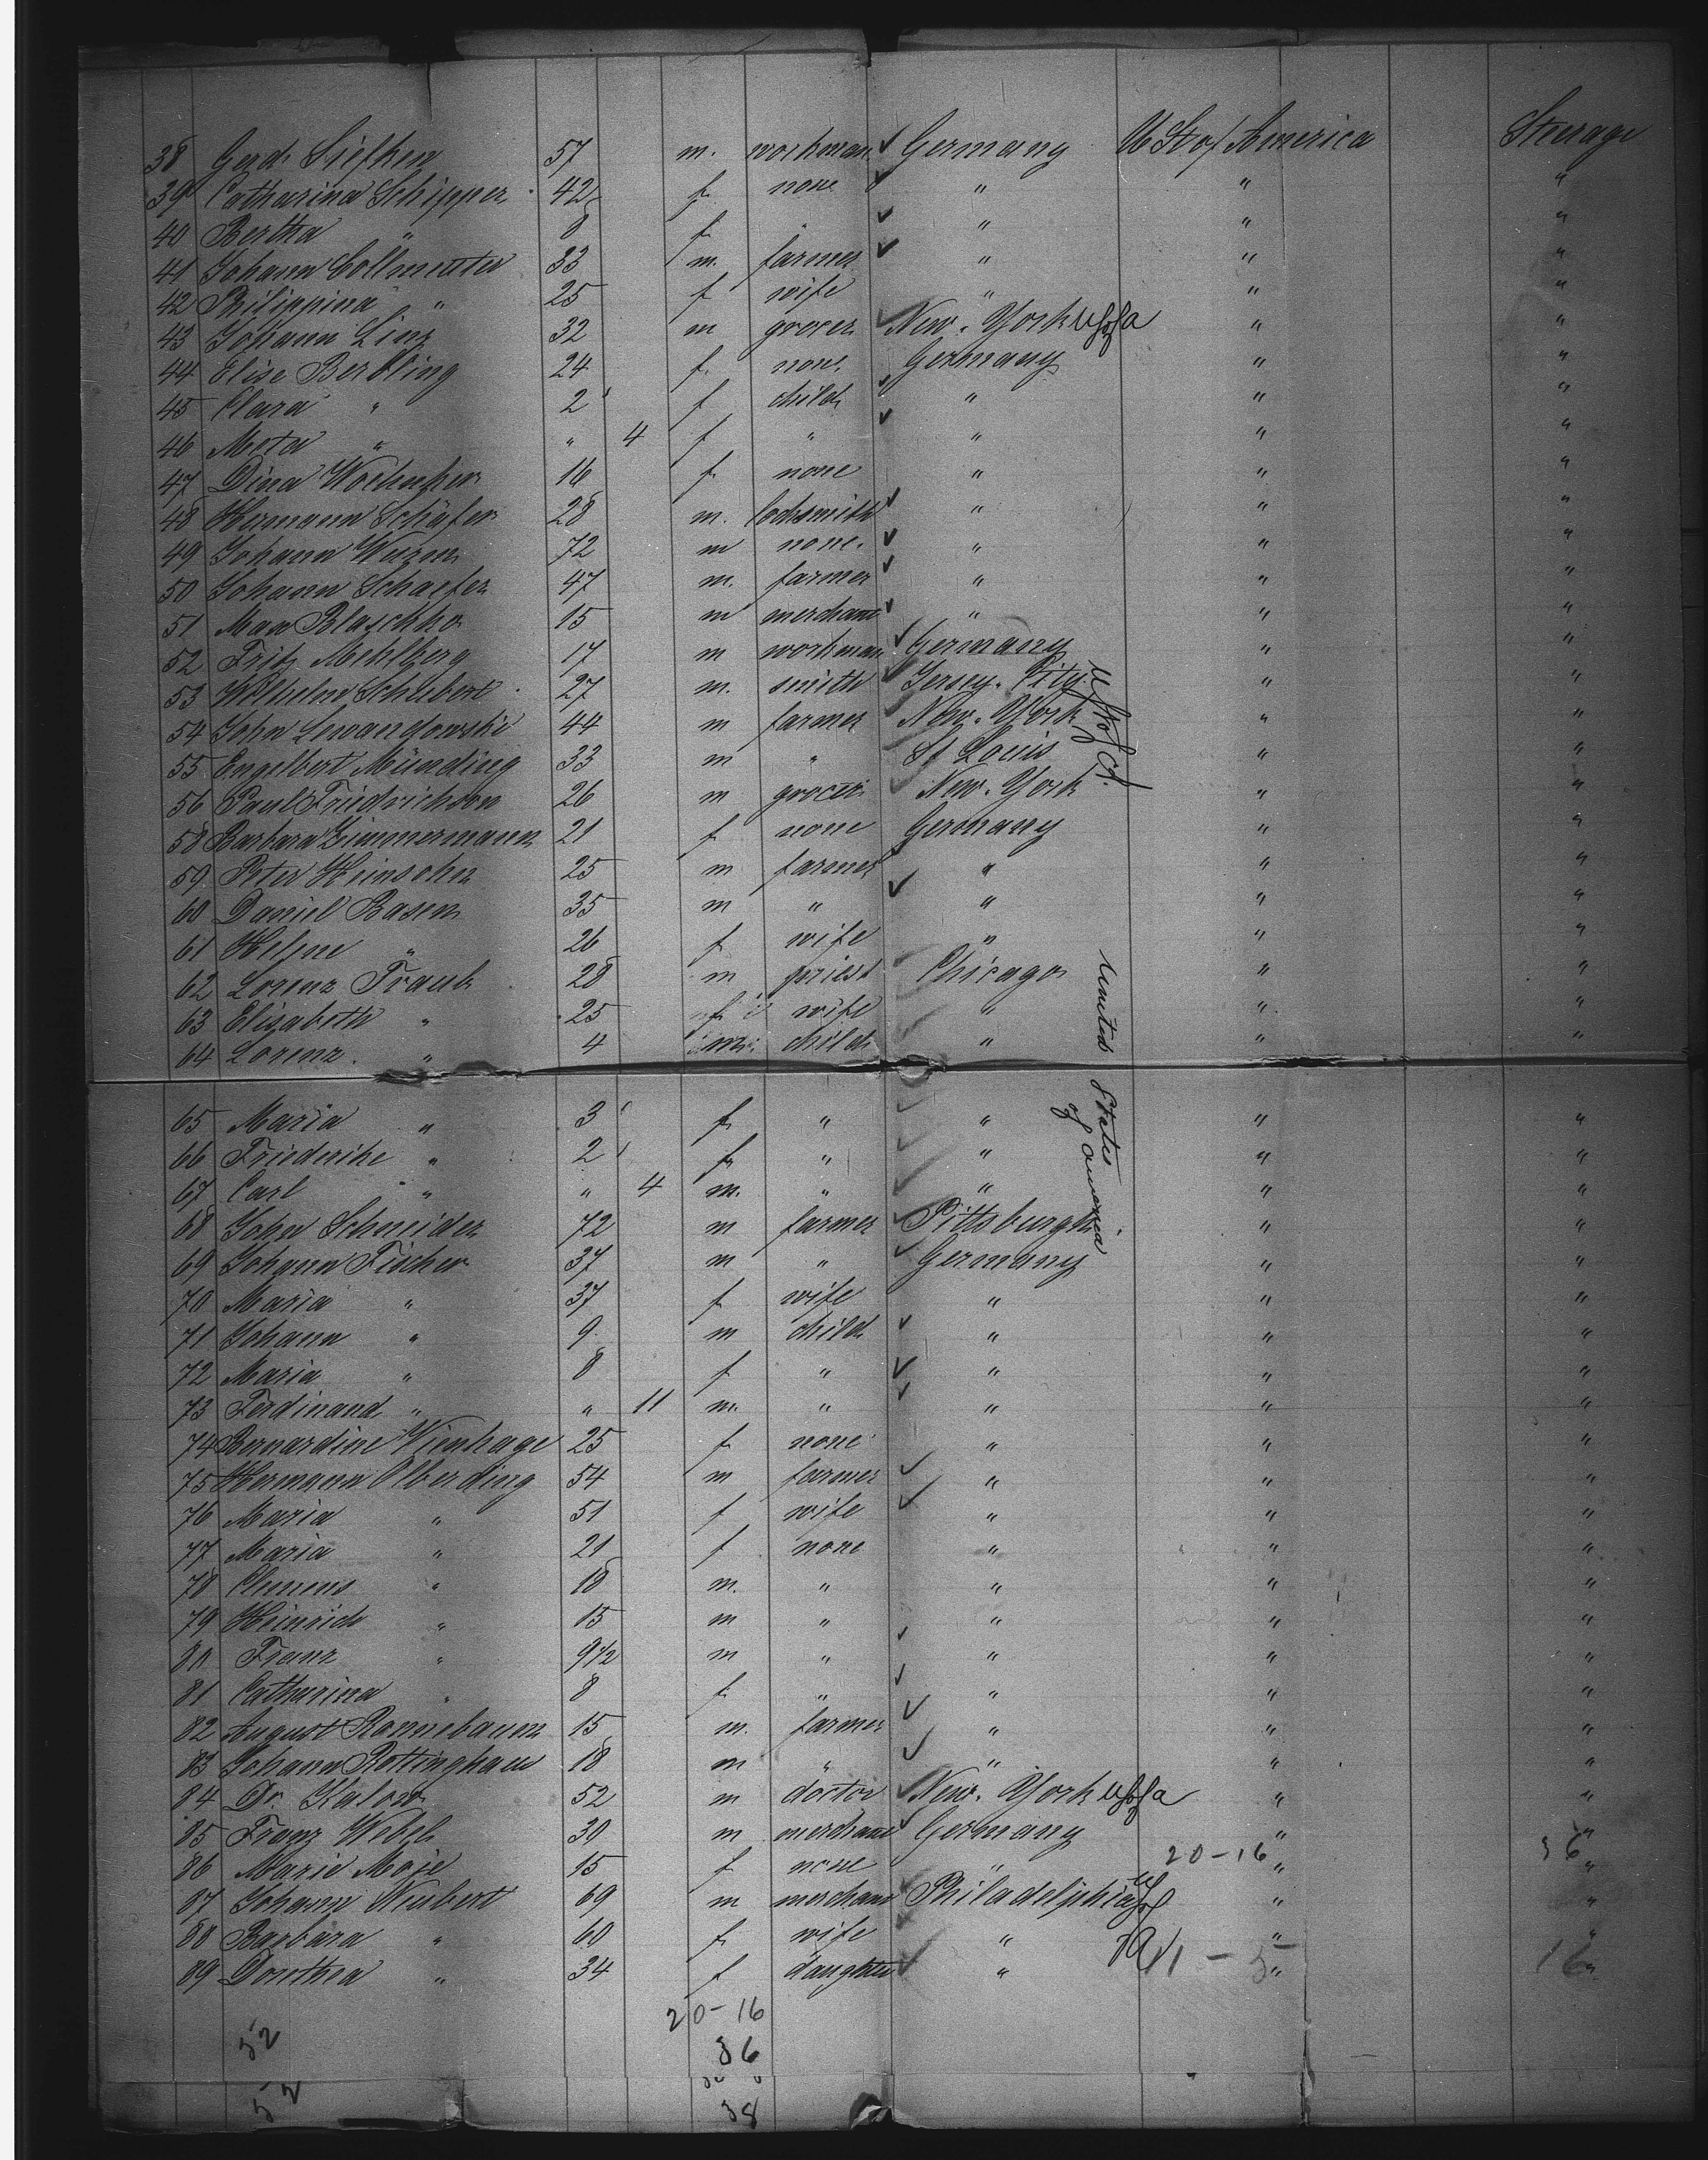 38 Gerd Siefken 57 m. workman Germany U St of America Steerage
39 Catharina Schipper 42 f. none " " "
40 Bertha " 8 f " " " "
41 Johann Collmetter 33 m. farmer " " "
42 Philippina " 25 f wife " " "
43 Johann Linz 32 m grocer New-York U S of a " "
44 Elise Berbling 24 f. none. Germany " "
45 Clara " 2 f child " " "
46 Meta " " 4 f " " " "
47 Dina 16 f none " " "
48 Hermann Schäfer 28 m. locksmith " " "
49 Johann 72 m none. " " "
50 Johann Schaefer 47 m. farmer " " "
51 Max Blaschko 15 m merchant " " "
52 Fritz Mehlberg 17 m workman Germany " "
53 Wilhelm Schubert 27 m. smith Jersey-City U St of A. " "
54 John Lewandowski 44 m farmer New-York " "
55 Engelbert Münding 33 m " St Louis " "
56 Paul Friedrichson 26 m grocer New-York " "
58 Barbara Zimmermann 21 f none Germany " "
59 Peter Heinschen 25 m farmer " " "
60 Daniel Basem 35 m " " " "
61 Helene " 26 f wife " " "
62 Lorenz Traub 28 m priest Chicago United States of America " "
63 Elisabeth " 25 f wife " " "
64 Lorenz " 4 m child " " "
65 Maria " 3 f " " " "
66 Friederike " 2 f " " " "
67 Carl " " 4 m. " " " "
68 John Schneider 72 m farmer Pittsburgh " "
69 Johann Fischer 37 m " Germany " "
70 Maria " 37 f wife " " "
71 Johann " 9 m child " " "
72 Maria " 8 f " " " "
73 Ferdinand " " 11 m. " " " "
74 Bernardine Wienhage 25 f none " " "
75 Hermann Olberding 54 m farmer " " "
76 Maria " 51 f wife " " "
77 Maria " 21 f none " " "
78 Clemens " 18 m. " " " "
79 Heinrich " 15 m " " " "
80 Franz " 9 1/2 m " " " "
81 Catharina " 8 f " " " "
82 August Ronnebaum 15 m. farmer " " "
83 Johann Rottinghaus 18 m " " " "
84 Dr. Kalow 52 m doctor New-York U S of a " "
85 Franz 30 m merchant Germany " "
86 Marie Moje 15 f none " 20-16 " 36 "
87 Johann Neubert 69 m merchant Philadelphia U S of A " "
88 Barbara " 60 f wife " " "
89 Dorothea " 34 f daughter " 11-5 " 16 "
20-16
52 36
52 38